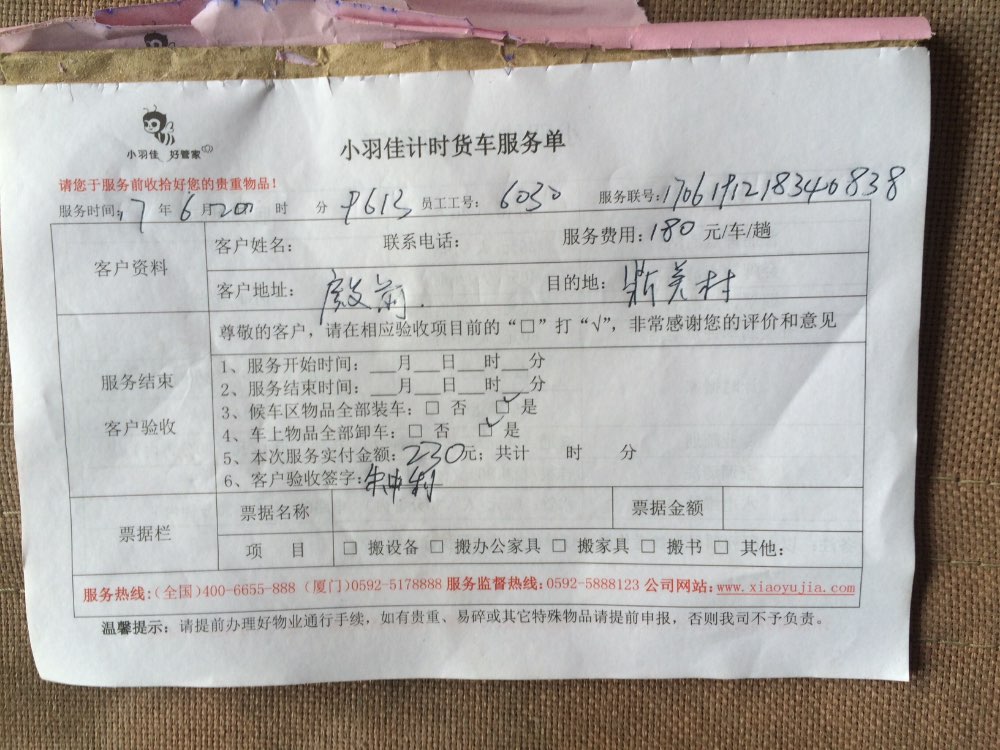 小羽佳 好管家
小羽佳计时货车服务单
请您于服务前收拾好您的贵重物品！
服务时间：17 年 6 月 20 时 分 9613 员工工号： 6030 服务联号：1706191218340838
客户资料
客户姓名： 联系电话： 服务费用：180 元/车/趟
客户地址： 目的地： 村
服务结束
客户验收
尊敬的客户，请在相应验收项目前的“□”打“√”，非常感谢您的评价和意见
1、服务开始时间：___月___日___时___分
2、服务结束时间：___月___日___时___分
3、候车区物品全部装车：□ 否 □ 是
4、车上物品全部卸车：□ 否 □ 是
5、本次服务实付金额：230元；共计 时 分
6、客户验收签字：
票据栏
票据名称 票据金额
项 目 □ 搬设备 □ 搬办公家具 □ 搬家具 □ 搬书 □ 其他：
服务热线：（全国）400-6655-888（厦门）0592-5178888 服务监督热线：0592-5888123 公司网站：www.xiaoyujia.com
温馨提示：请提前办理好物业通行手续，如有贵重、易碎或其它特殊物品请提前申报，否则我司不予负责。